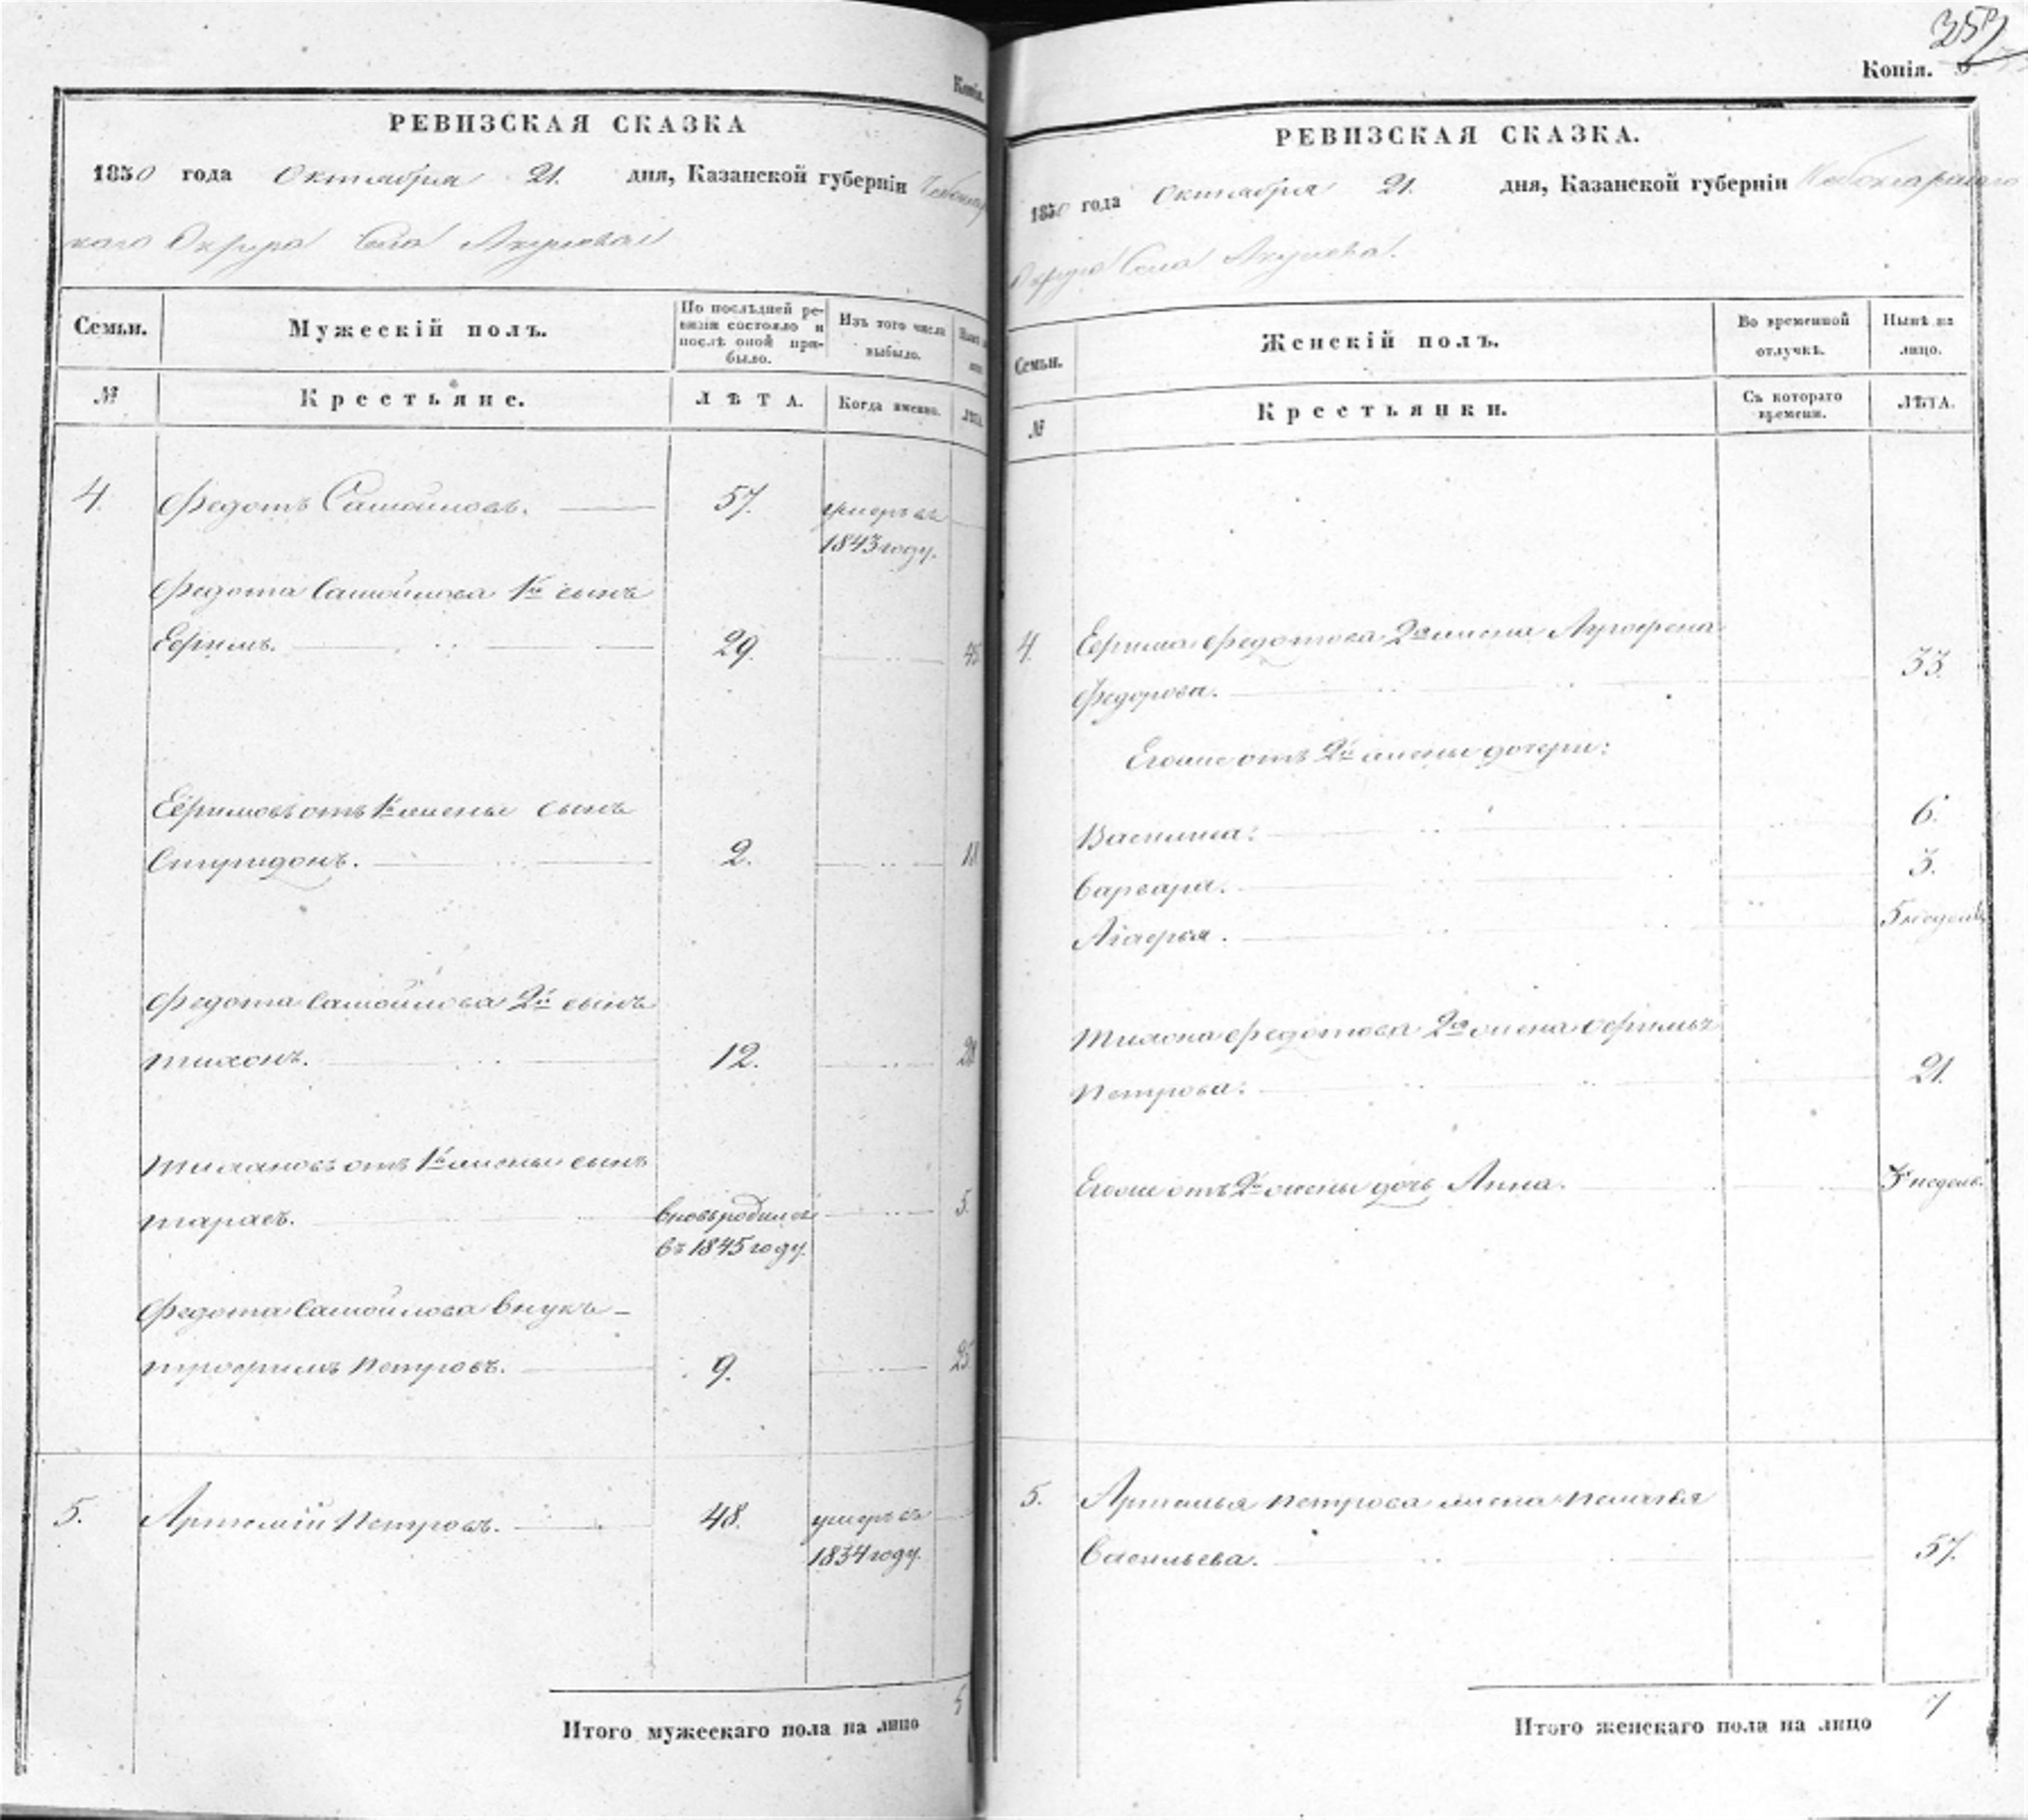 Копія.
РЕВИЗСКАЯ СКАЗКА
1850 года Октября 21. дня, Казанской губерніи Чебоксар
скаго Округа Села Акулева
Семьи.
Мужескій полъ.
По послѣдней ре-
визіи состояло и
послѣ оной при-
было.
Изъ того числа
выбыло.
№
Крестьяне.
ЛѢТА.
Когда именно.
ЛѢТА.
4. Федотъ Самойловъ. 57. умеръ въ
1843 году.
Федота Самойлова 1й сынъ
Ефримъ. 29. 45
Ефримовъ отъ 1й жены сынъ
Спиридонъ. 2. 18
Федота Самойлова 2й сынъ
Тихонъ. 12. 28
Тихоновъ отъ 1й жены сынъ
Тарасъ. вновь родился 5.
въ 1845 году.
Федота Самойлова внукъ
Трофимъ Петровъ. 9. 25.
5. Артемій Петровъ. 48. умеръ въ
1834 году.
Итого мужескаго пола на лицо 5
353
Копія.
РЕВИЗСКАЯ СКАЗКА.
1850 года Октября 21. дня, Казанской губерніи Чебоксарскаго
Округа Села Акулева.
Семьи.
Женскій полъ.
Во временной
отлучкѣ.
Нынѣ на
лицо.
№
Крестьянки.
Съ котораго
времени.
ЛѢТА.
4. Ефрима Федотова 2я жена Агрофена
Федорова. 33.
Егоже отъ 2й жены дочери:
Василиса: 6.
Варвара. 3.
Агафья. 5 недель
Тихона Федотова 2я жена
Петрова. 21.
Егоже отъ 2й жены дочь Анна. недель.
5. Артемья Петрова жена Пелагея
Васильева. 57.
Итого женскаго пола на лицо 7